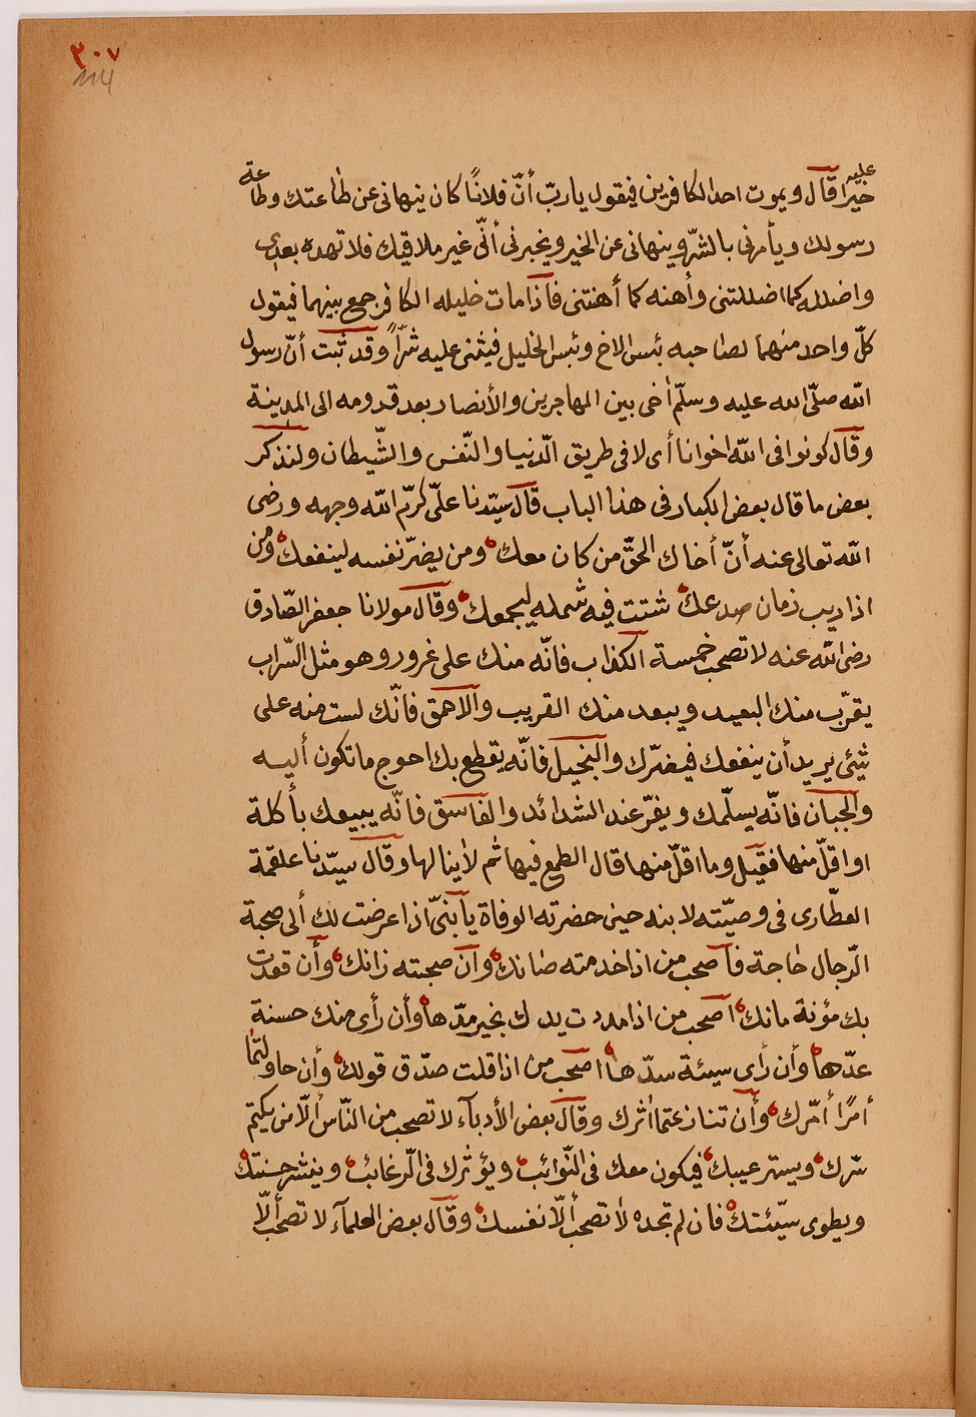 ٣٠٧
عليه
خيرا قال ويموت احد الكافرين فيقول يا ربّ أنّ فلانًا كان ينهانى عن طاعتك وطاعة
رسولك ويأمرنى بالشرّ وينهانى عن الخير ويخبرنى أنّى غير ملاقيك فلا تهده بعدى
واضلله كما اضللتنى وأهنه كما أهنتنى فاذا مات خليله الكافر جمع بينهما فيقول
كلّ واحد منهما لصاحبه بئس الاخ وبئس الخليل فيثنى عليه شرّاً وقد ثبت أنّ رسول
الله صلّى الله عليه وسلّم أخى بين المهاجرين والأنصار بعد قدومه الى المدينة
وقال كونوا فى الله اخوانا أى لا فى طريق الدّنيا والنّفس والشّيطان ولنذكر
بعض ما قال بعض الكبار فى هذا الباب قال سيّدنا علىّ كرّم الله وجهه ورضى
الله تعالى عنه أنّ أخاك الحقّ من كان معك ومن يضرّ نفسه لينفعك ومن
اذا ريب زمان صدعك شتت فيه شمله ليجمعك وقال مولانا جعفر الصّادق
رضى الله عنه لا تصحب خمسة الكذاب فانّه منك على غرور وهو مثل السّراب
يقرّب منك البعيد ويبعد منك القريب والاحمق فانّك لست منه على
شئ يريد أن ينفعك فيضرّك والبخيل فانّه يقطع بك احوج ما تكون أليه
والجبان فانّه يسلّمك ويفرّ عند الشدائد والفاسق فانّه يبيعك بأكلة
او اقلّ منها فقيل وما اقلّ منها قال الطمع فيها ثم لا ينالها وقال سيّدنا علقمة
العطّارى فى وصيّته لابنه حين حضرته الوفاة يا بنىّ اذا عرضت لك ألى صحبة
الرّجال حاجة فاصحب من اذا خدمته صانك وان صحبته زانك وأن قعدت
بك مؤنة مانك اصحب من اذا مددت يدك بخير مدّها وأن رأى منك حسنة
عدّها وأن رأى سيئة سدّها اصحب من اذا قلت صدّق قولك وأن حاولتما
أمرًا أمّرك وأن تنازعتما أثرك وقال بعض الأدبآء لا تصحب من النّاس ألّا من يكتم
سّرك ويستر عيبك فيكون معك فى النّوائب ويؤثرك فى الّرغائب وينشر حسنتك
ويطوى سيّئتك فان لم تجده لا تصحب ألّا نفسك وقال بعض العلمآء لا تصحب ألّا